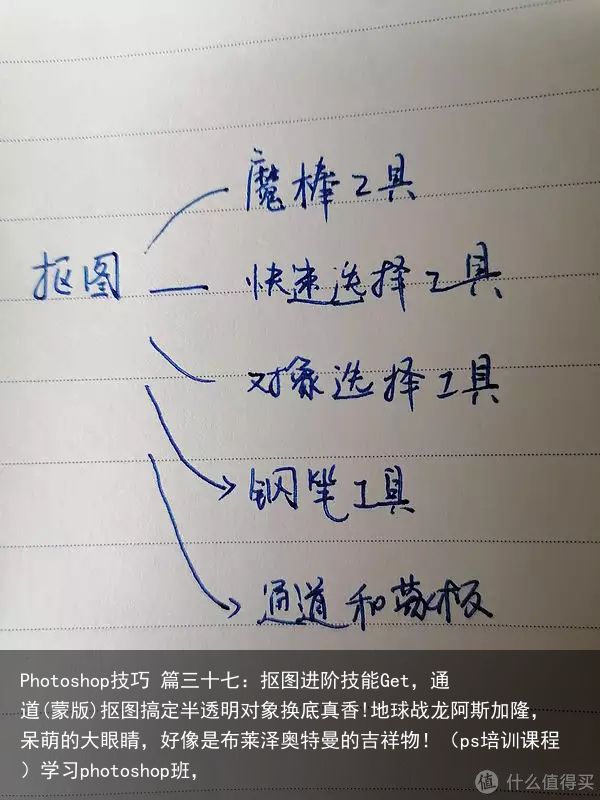 魔棒工具
抠图
快速选择工具
对象选择工具
钢笔工具
通道和蒙板
Photoshop技巧 篇三十七：抠图进阶技能Get，通
道(蒙版)抠图搞定半透明对象换底真香!地球战龙阿斯加隆，
呆萌的大眼睛，好像是布莱泽奥特曼的吉祥物！（ps培训课程
）学习photoshop班，
值 什么值得买